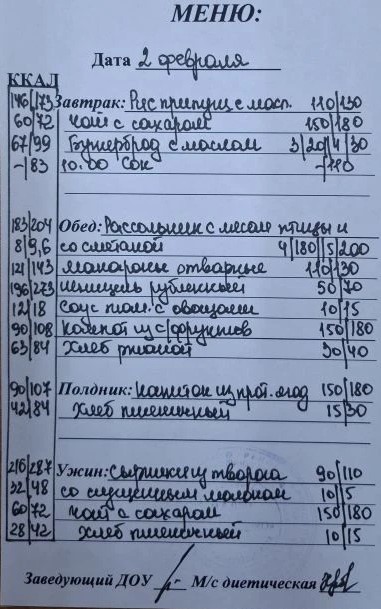 МЕНЮ:
Дата 2 февраля
ККАЛ
146/173 Завтрак: Рис припущ с масл. 110/130
60/72 чай с сахаром 150/180
67/99 Бутерброд с маслом 3/20/4/30
-/83 10.00 сок -/110
183/204 Обед: Рассольник с мясом птицы и
8/9,6 со сметаной 4/180/5/200
121/143 макароны отварные 110/130
196/273 шницель рубленный 50/70
12/18 соус том. с овощами 10/15
90/108 Компот из с/фруктов 150/180
63/84 Хлеб ржаной 30/40
90/107 Полдник: напиток из прот. ягод 150/180
42/84 Хлеб пшеничный 15/30
216/287 Ужин: сырники из творога 90/110
32/48 со сгущенным молоком 10/5
60/72 чай с сахаром 150/180
28/42 хлеб пшеничный 10/15
Заведующий ДОУ М/с диетическая